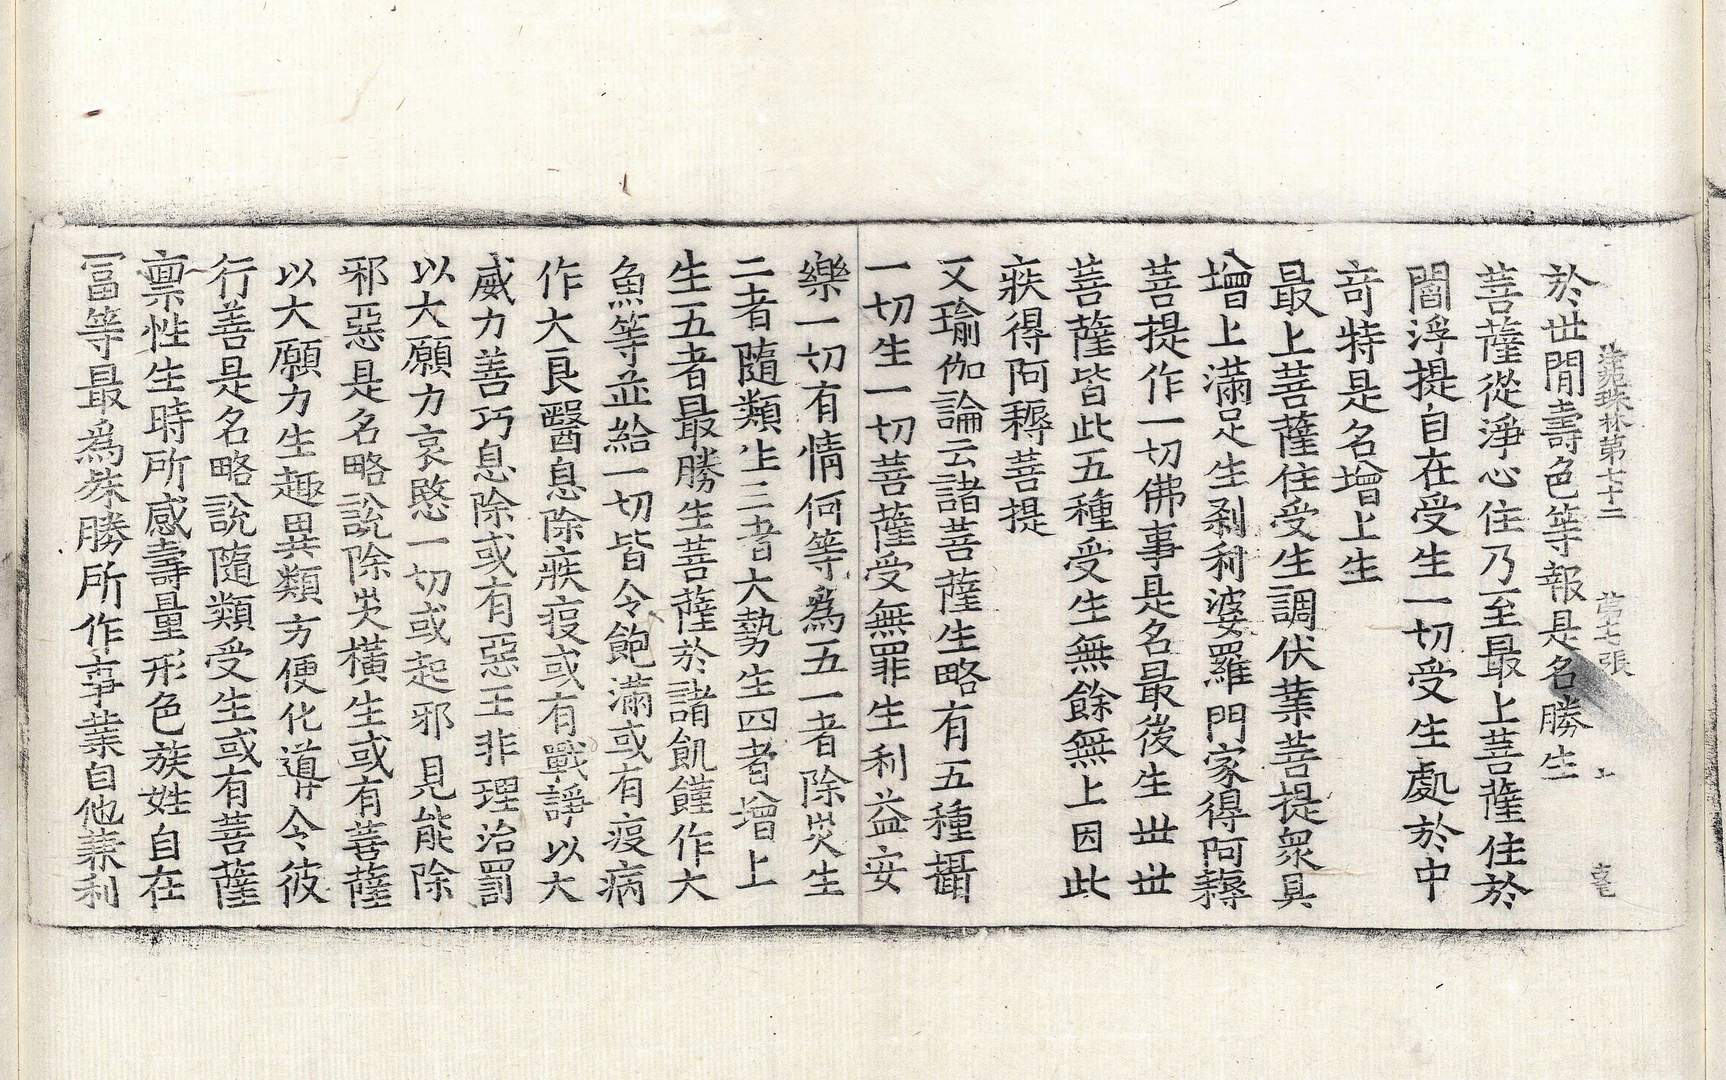 法苑珠林第七十二 第七張 㲋
於世間壽色等報是名勝生
菩薩從淨心住乃至最上菩薩住於
閻浮提自在受生一切受生處於中
奇特是名增上生
最上菩薩住受生調伏業菩提衆具
增上滿足生刹利婆羅門家得阿耨
菩提作一切佛事是名最後生丗丗
菩薩皆此五種受生無餘無上因此
疾得阿耨菩提
又瑜伽論云諸菩薩生略有五種攝
一切生一切菩薩受無罪生利益安
樂一切有情何等爲五一者除災生
二者隨類生三者大勢生四者增上
生五者最勝生菩薩於諸飢饉作大
魚等並給一切皆令飽滿或有疫病
作大良醫息除疾疫或有戰諍以大
威力善巧息除或有惡王非理治罰
以大願力哀愍一切或起邪見能除
邪惡是名略說除災橫生或有菩薩
以大願力生趣異類方便化導令彼
行善是名略說隨類受生或有菩薩
稟性生時所感壽量形色族姓自在
冨等最爲殊勝所作事業自他兼利